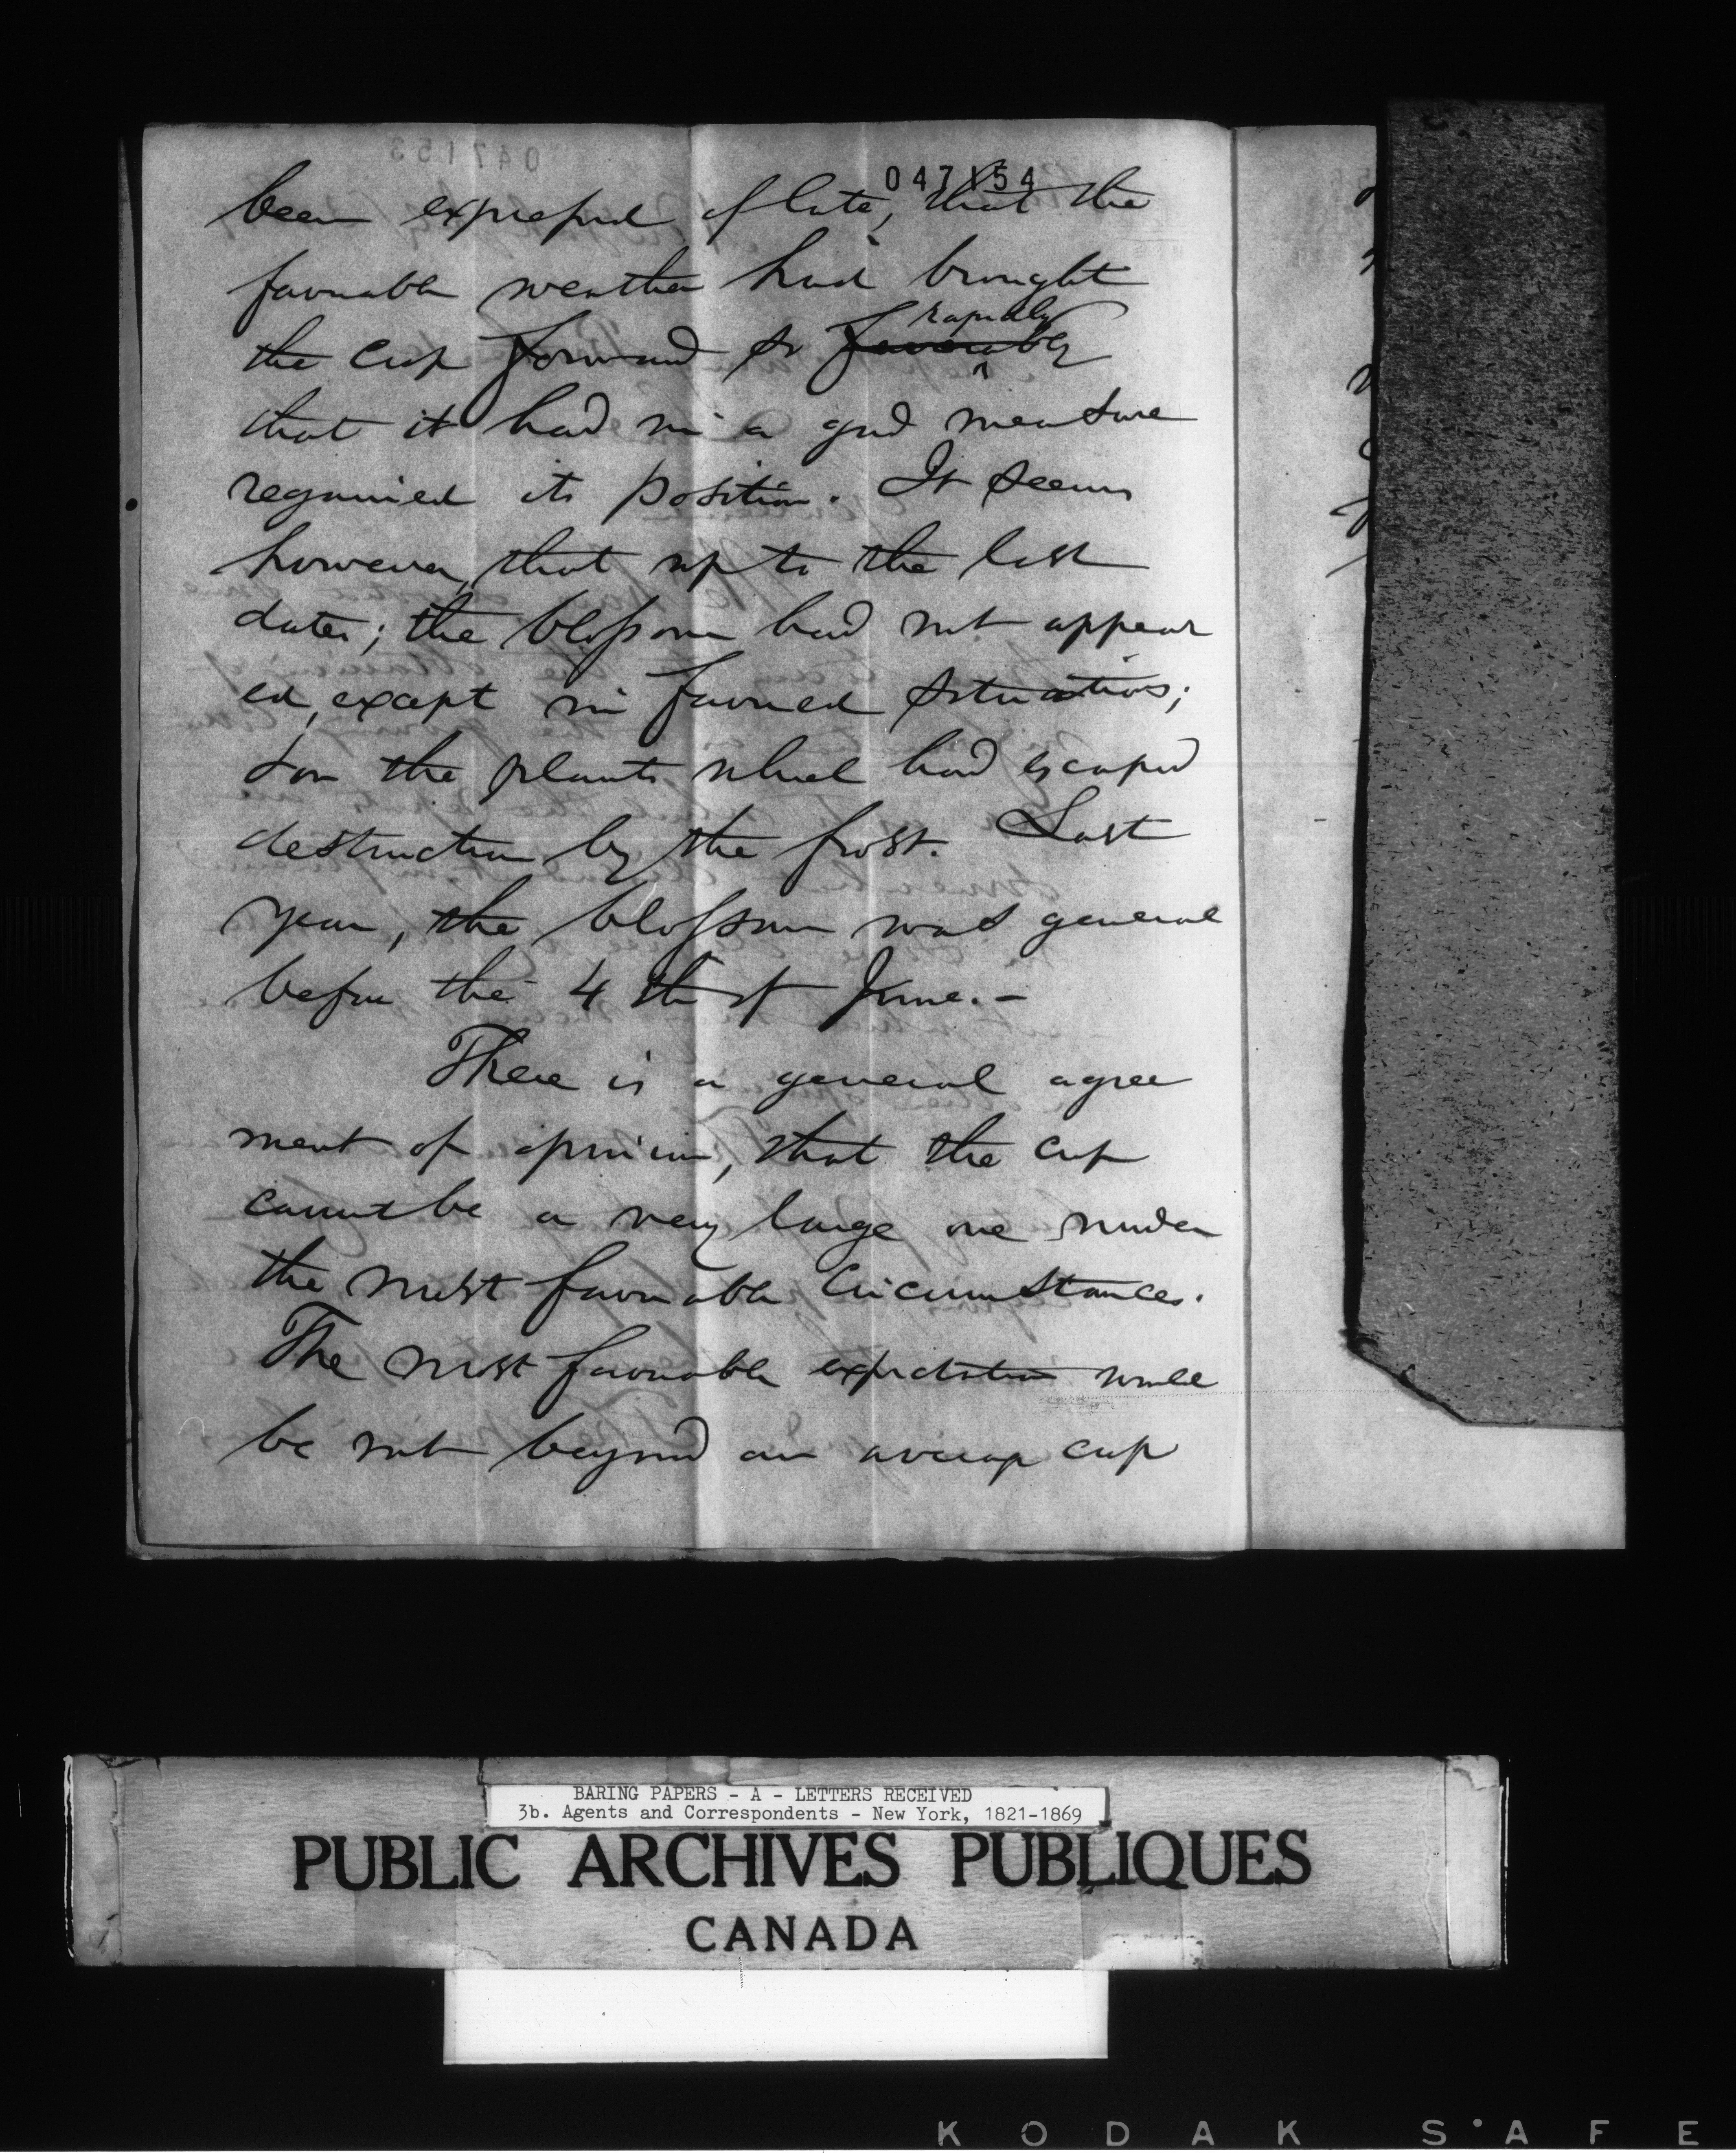 047154
been expressed of late, that the
favorable weather had brought
rapidly
the crop forward so favorably
that it had in a good measure
regained its position. It seems
however, that up to the last
dates; the blossom had not appear
ed, except in favored situations;
on the plants which had escaped
destruction by the frost. Last
year, the blossom was general
before the 4th of June.-
There is a general agree
ment of opinion, that the crop
cannot be a very large one under
the most favorable circumstances.
The most favorable expectation would
be not beyond an average crop
BARING PAPERS - A - LETTERS RECEIVED
3b. Agents and Correspondents - New York, 1821-1869
PUBLIC ARCHIVES PUBLIQUES
CANADA
KODAK SAFE